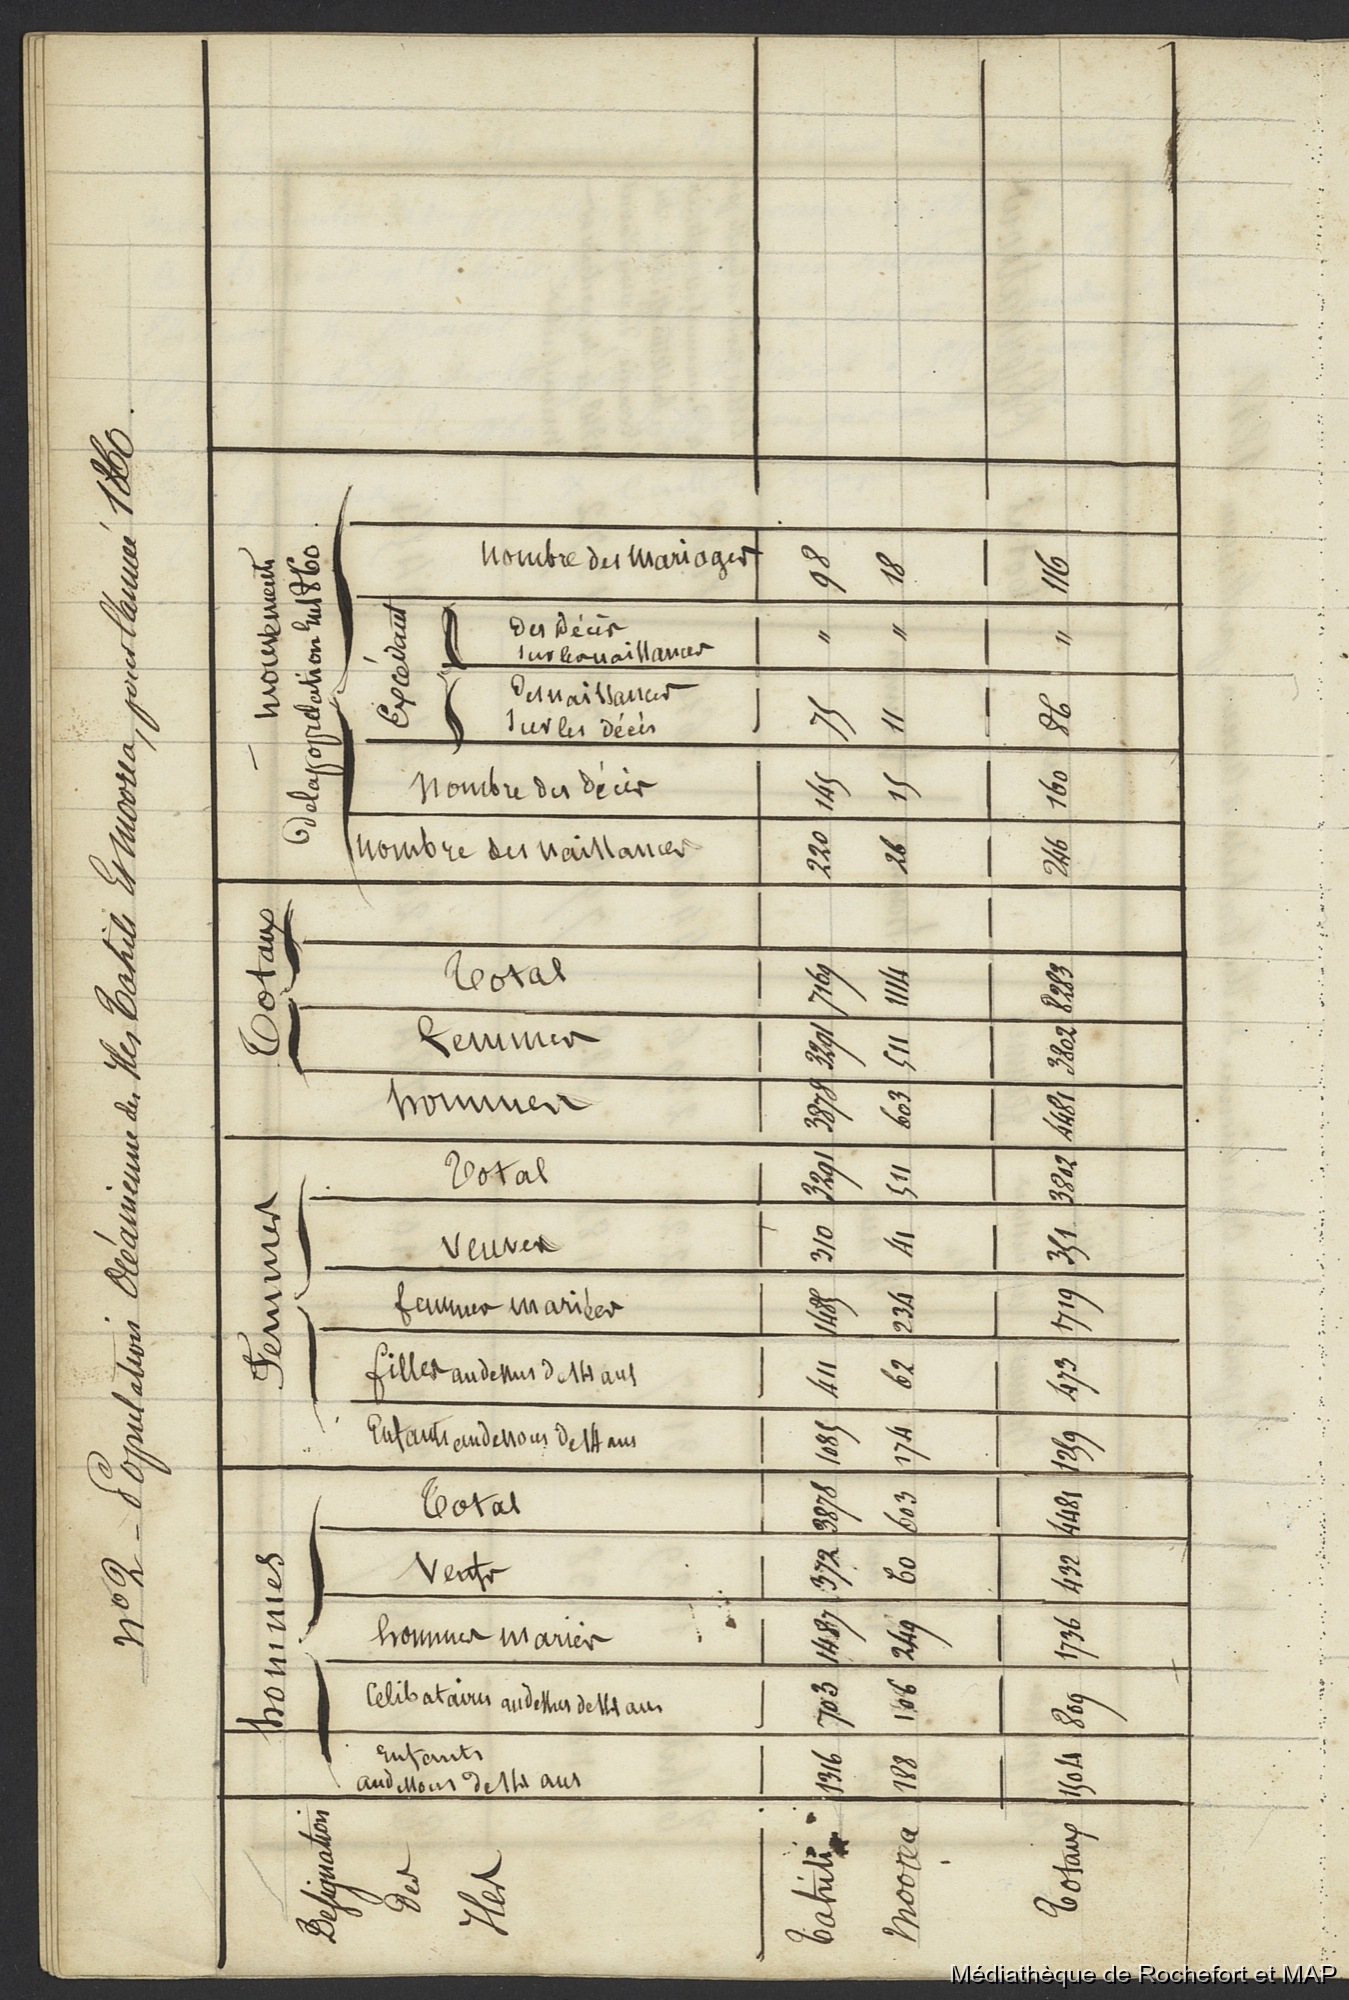 No 2 - Population Océanienne des Iles Tahiti Et Moorea, pour l'année 1860.
Désignation
Des
Iles
hommes
Enfants
audessous de 14 ans
Celibataires audessus de 14 ans
hommes mariés
Veufs
Total
Femmes
Enfants audessous de 14 ans
filles audessus de 14 ans
femmes mariées
Veuves
Total
Totaux
hommes
Femmes
Total
mouvements
de la population En 1860
Nombre des naissances
Nombre des Décès
Excédant
Des naissances
Sur les décès
Des Décès
Sur les naissances
Nombre des Mariages
Tahiti 1316 703 1487 372 3878 1085 411 1485 310 3291 3878 3291 7169 220 145 75 " 98
Moorea 188 106 249 60 603 174 62 234 41 511 603 511 1114 26 15 11 " 18
Totaux 1504 809 1736 432 4481 1259 473 1719 351 3802 4481 3802 8283 246 160 86 " 116
Médiathèque de Rochefort et MAP